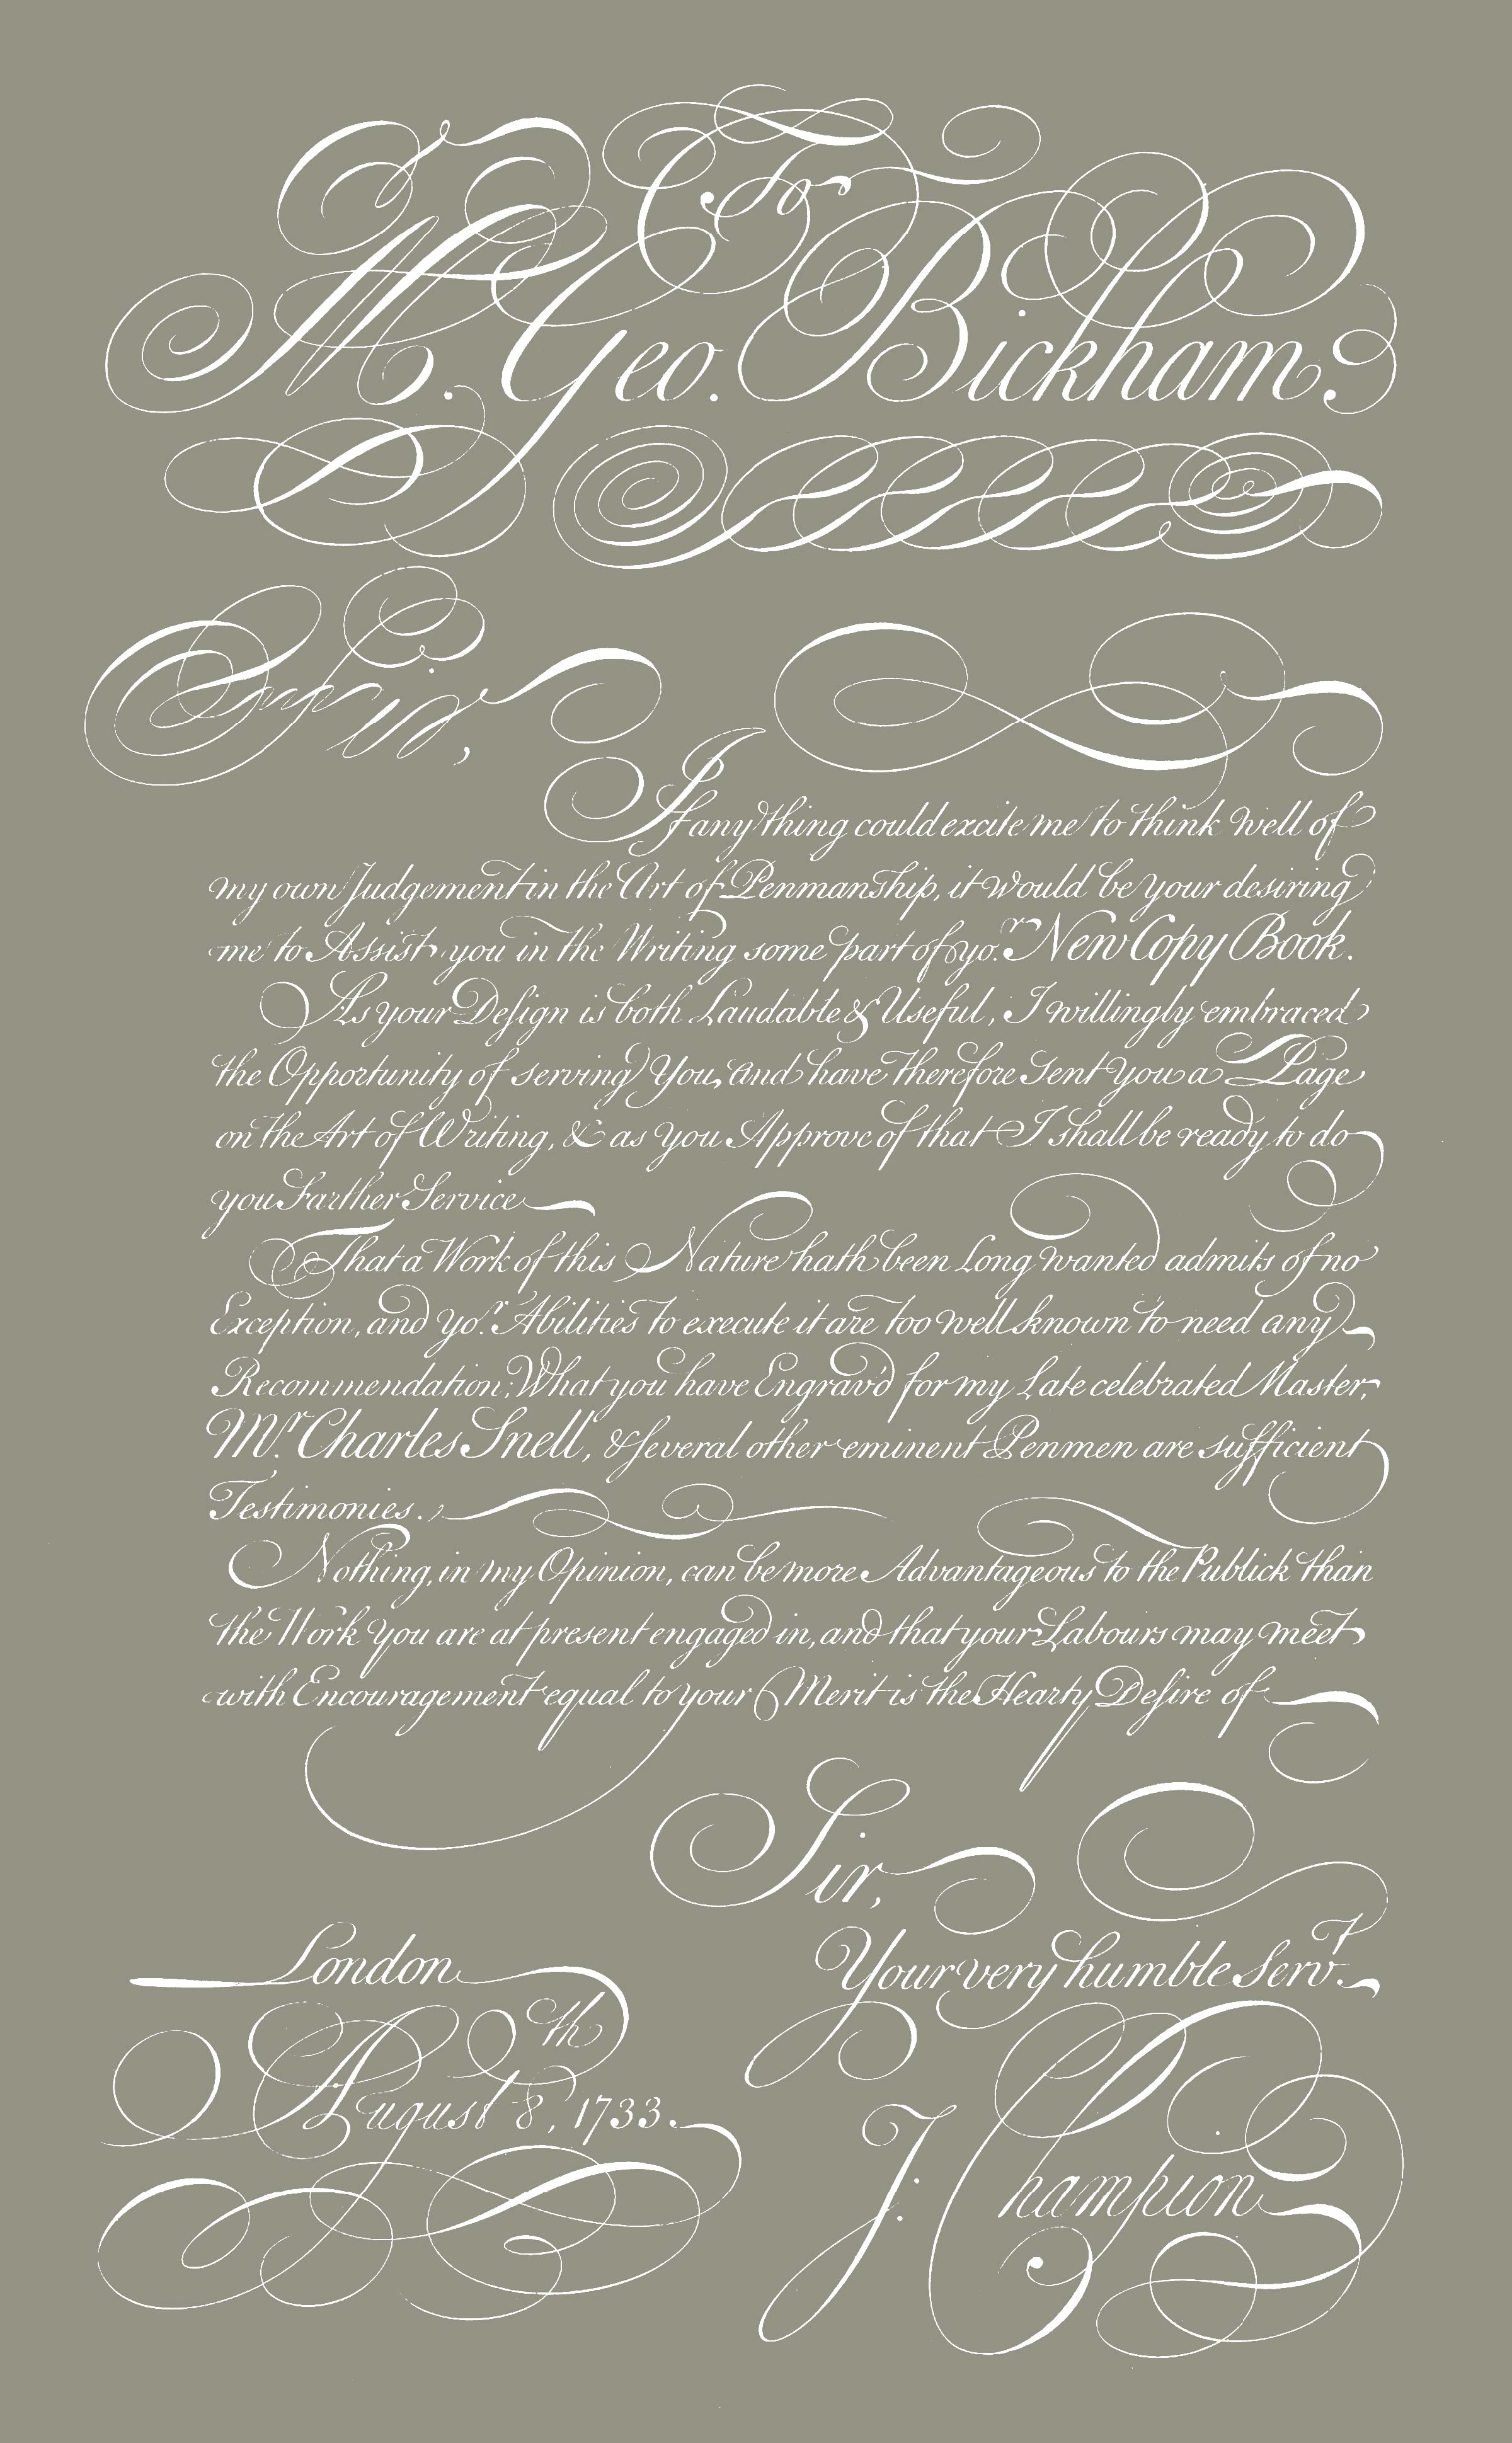 For
Mr. Geo. Bickham.
Sir,
If any thing could excite me to think well of
my own Judgement in the Art of Penmanship, it would be your desiring
me to Assist you in the Writing some part of yor. New Copy Book.
As your Design is both Laudable & Useful, I willingly embraced
the Opportunity of serving You, and have Therefore Sent You a Page
on the Art of Writing, & as you Approve of that I shall be ready to do
you Farther Service
That a Work of this Nature hath been Long wanted admits of no
Exception, and yor. Abilities to execute it are too well known to need any
Recommendation; What you have Engrav'd for my Late celebrated Master,
Mr. Charles Snell, & several other eminent Penmen are sufficient
Testimonies.
Nothing, in my Opinion, can be more Advantageous to the Publick than
the Work You are at present engaged in, and that your Labours may meet
with Encouragement equal to your Merit is the Hearty Desire of
Sir,
Your very humble Servt.
London
August 8th, 1733.
J: Champion